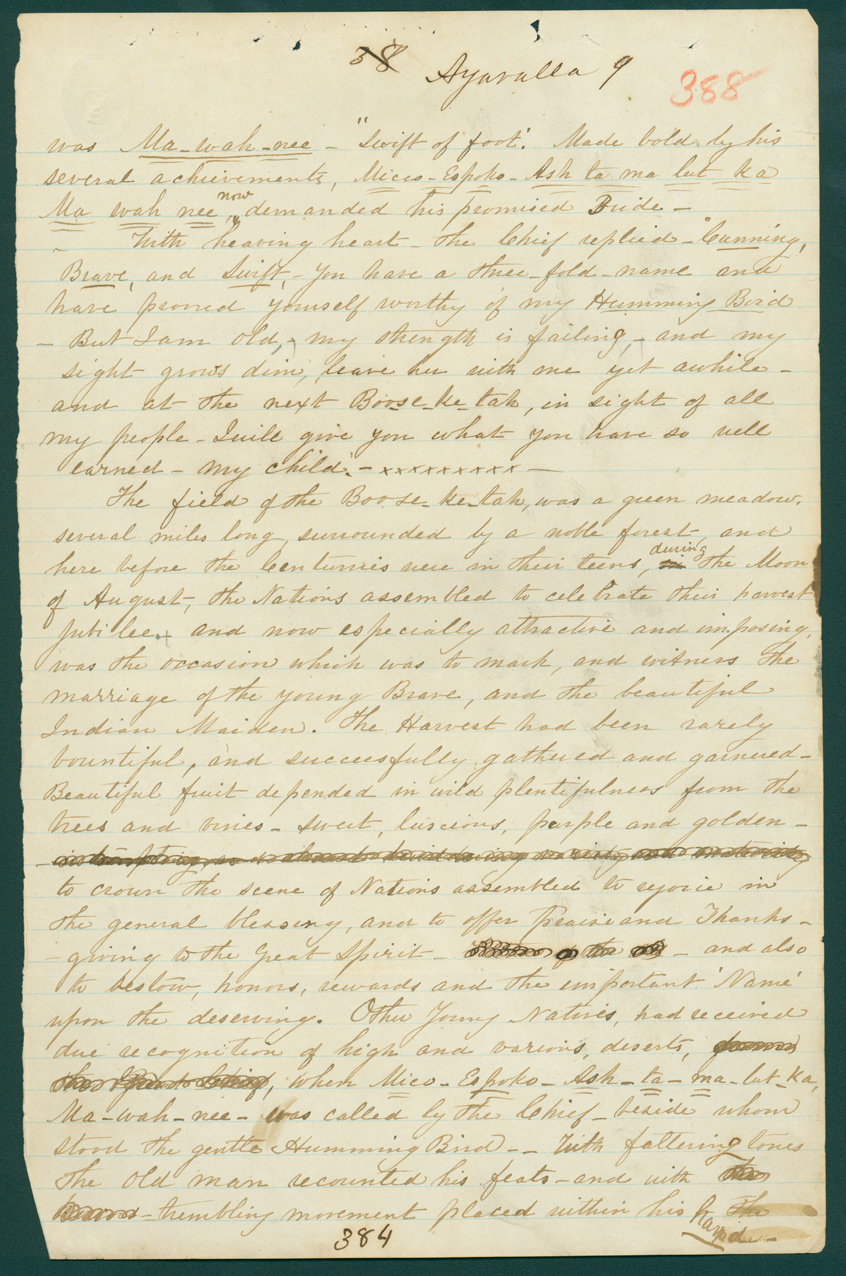 38 Ayavalla 9 388
was Ma-wah-nee - "Swift of foot". Made bold by his
several achievements, Micco-Espoko-Ash ta ma lut ka
Ma wah nee, now demanded his promised Bride -
- With heaving heart - the Chief replied - "Cunning,
Brave, and Swift, - you have a three-fold-name and
have prooved yourself worthy of my Humming Bird
- But I am old, - my strength is failing, - and my
sight grows dim, leave her with me yet awhile -
and at the next Boos-ke-tah, in sight of all
my people - I will give you what you have so well
earned - my child". - x x x x x x x x x -
The field of the Boos-ke-tah, was a green meadow,
several miles long, surrounded by a noble forest, and
here before the Centuries were in their teens, during the Moon
of August, the Nations assembled to celebrate their harvest
jubilee. and now especially attractive and imposing,
was the occasion which was to mark, and witness the
marriage of the young Brave, and the beautiful
Indian Maiden. The Harvest had been rarely
bountiful, and successfully gathered and garnered -
Beautiful fruit depended in wild plentifulness from the
trees and vines - sweet, luscious, purple and golden -
to crown the scene of Nations assembled to rejoice in
the general blessing, and to offer Praise and Thanks -
- giving to the Great Spirit - - and also
to bestow, honors, rewards and the important 'Name'
upon the deserving. Other Young Natives, had received
due recognition of high and various, deserts,
, when Mico-Espoko-Ash-ta-ma-lut-ka,
Ma-wah-nee - was called by the Chief - beside whom
stood the gentle Humming Bird - - With faltering tones
the old man recounted his feats - and with
- trembling movement placed within his
hand -
384